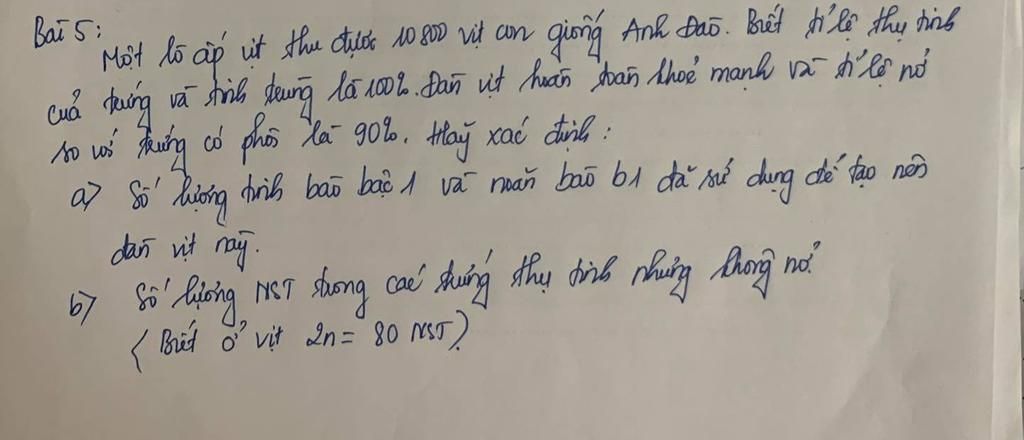 Bài 5:
Một lò ấp vịt thu được 10 800 vịt con giống Anh Đào. Biết tỉ lệ thụ tinh
của trứng và tinh trùng là 100%. Đàn vịt hoàn toàn khoẻ mạnh và tỉ lệ nở
so với trứng có phôi là 90%. Hãy xác định:
a) Số lượng tinh bào bậc 1 và noãn bào b1 đã sử dụng để tạo nên
đàn vịt này.
b) Số lượng NST trong các trứng thụ tinh nhưng không nở.
(Biết ở vịt 2n = 80 NST)